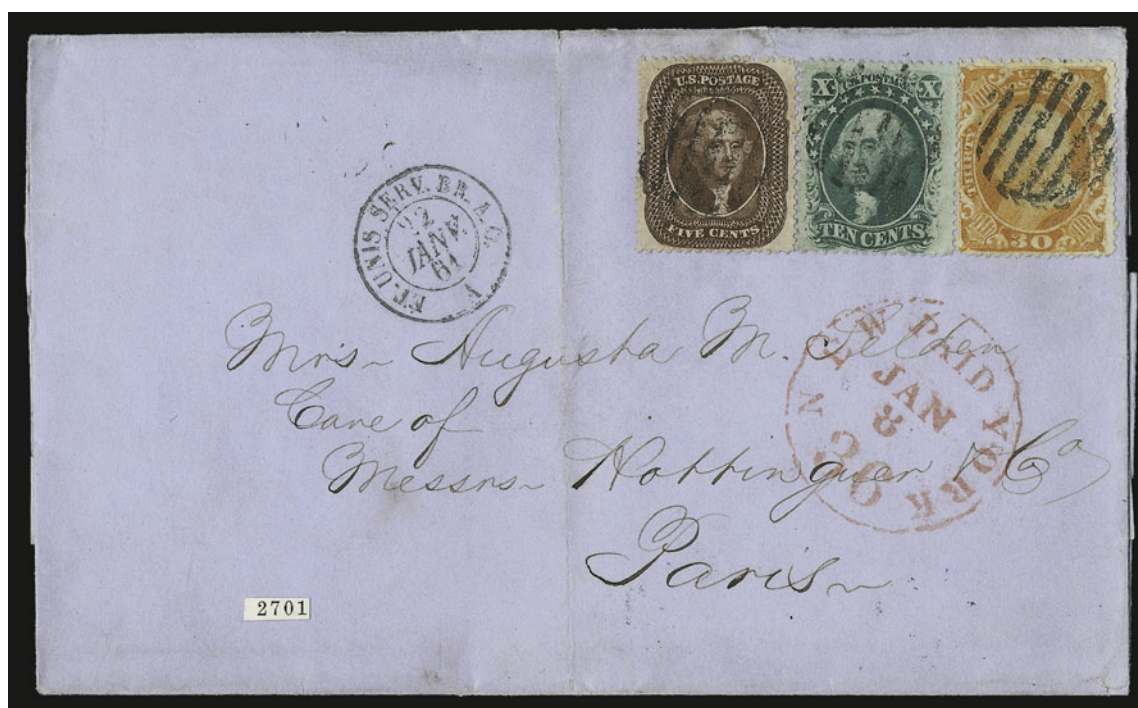 U.S. POSTAGE
FIVE CENTS
X U.S. POSTAGE X
TEN CENTS
THIRTY
30
ET.-UNIS SERV. BR. A. C.
22
JANV.
61
NEW PAID YORK
JAN
8
30
Mrs Augusta M. Selden
Care of
Messrs Hottinguer & Co
Paris
2701